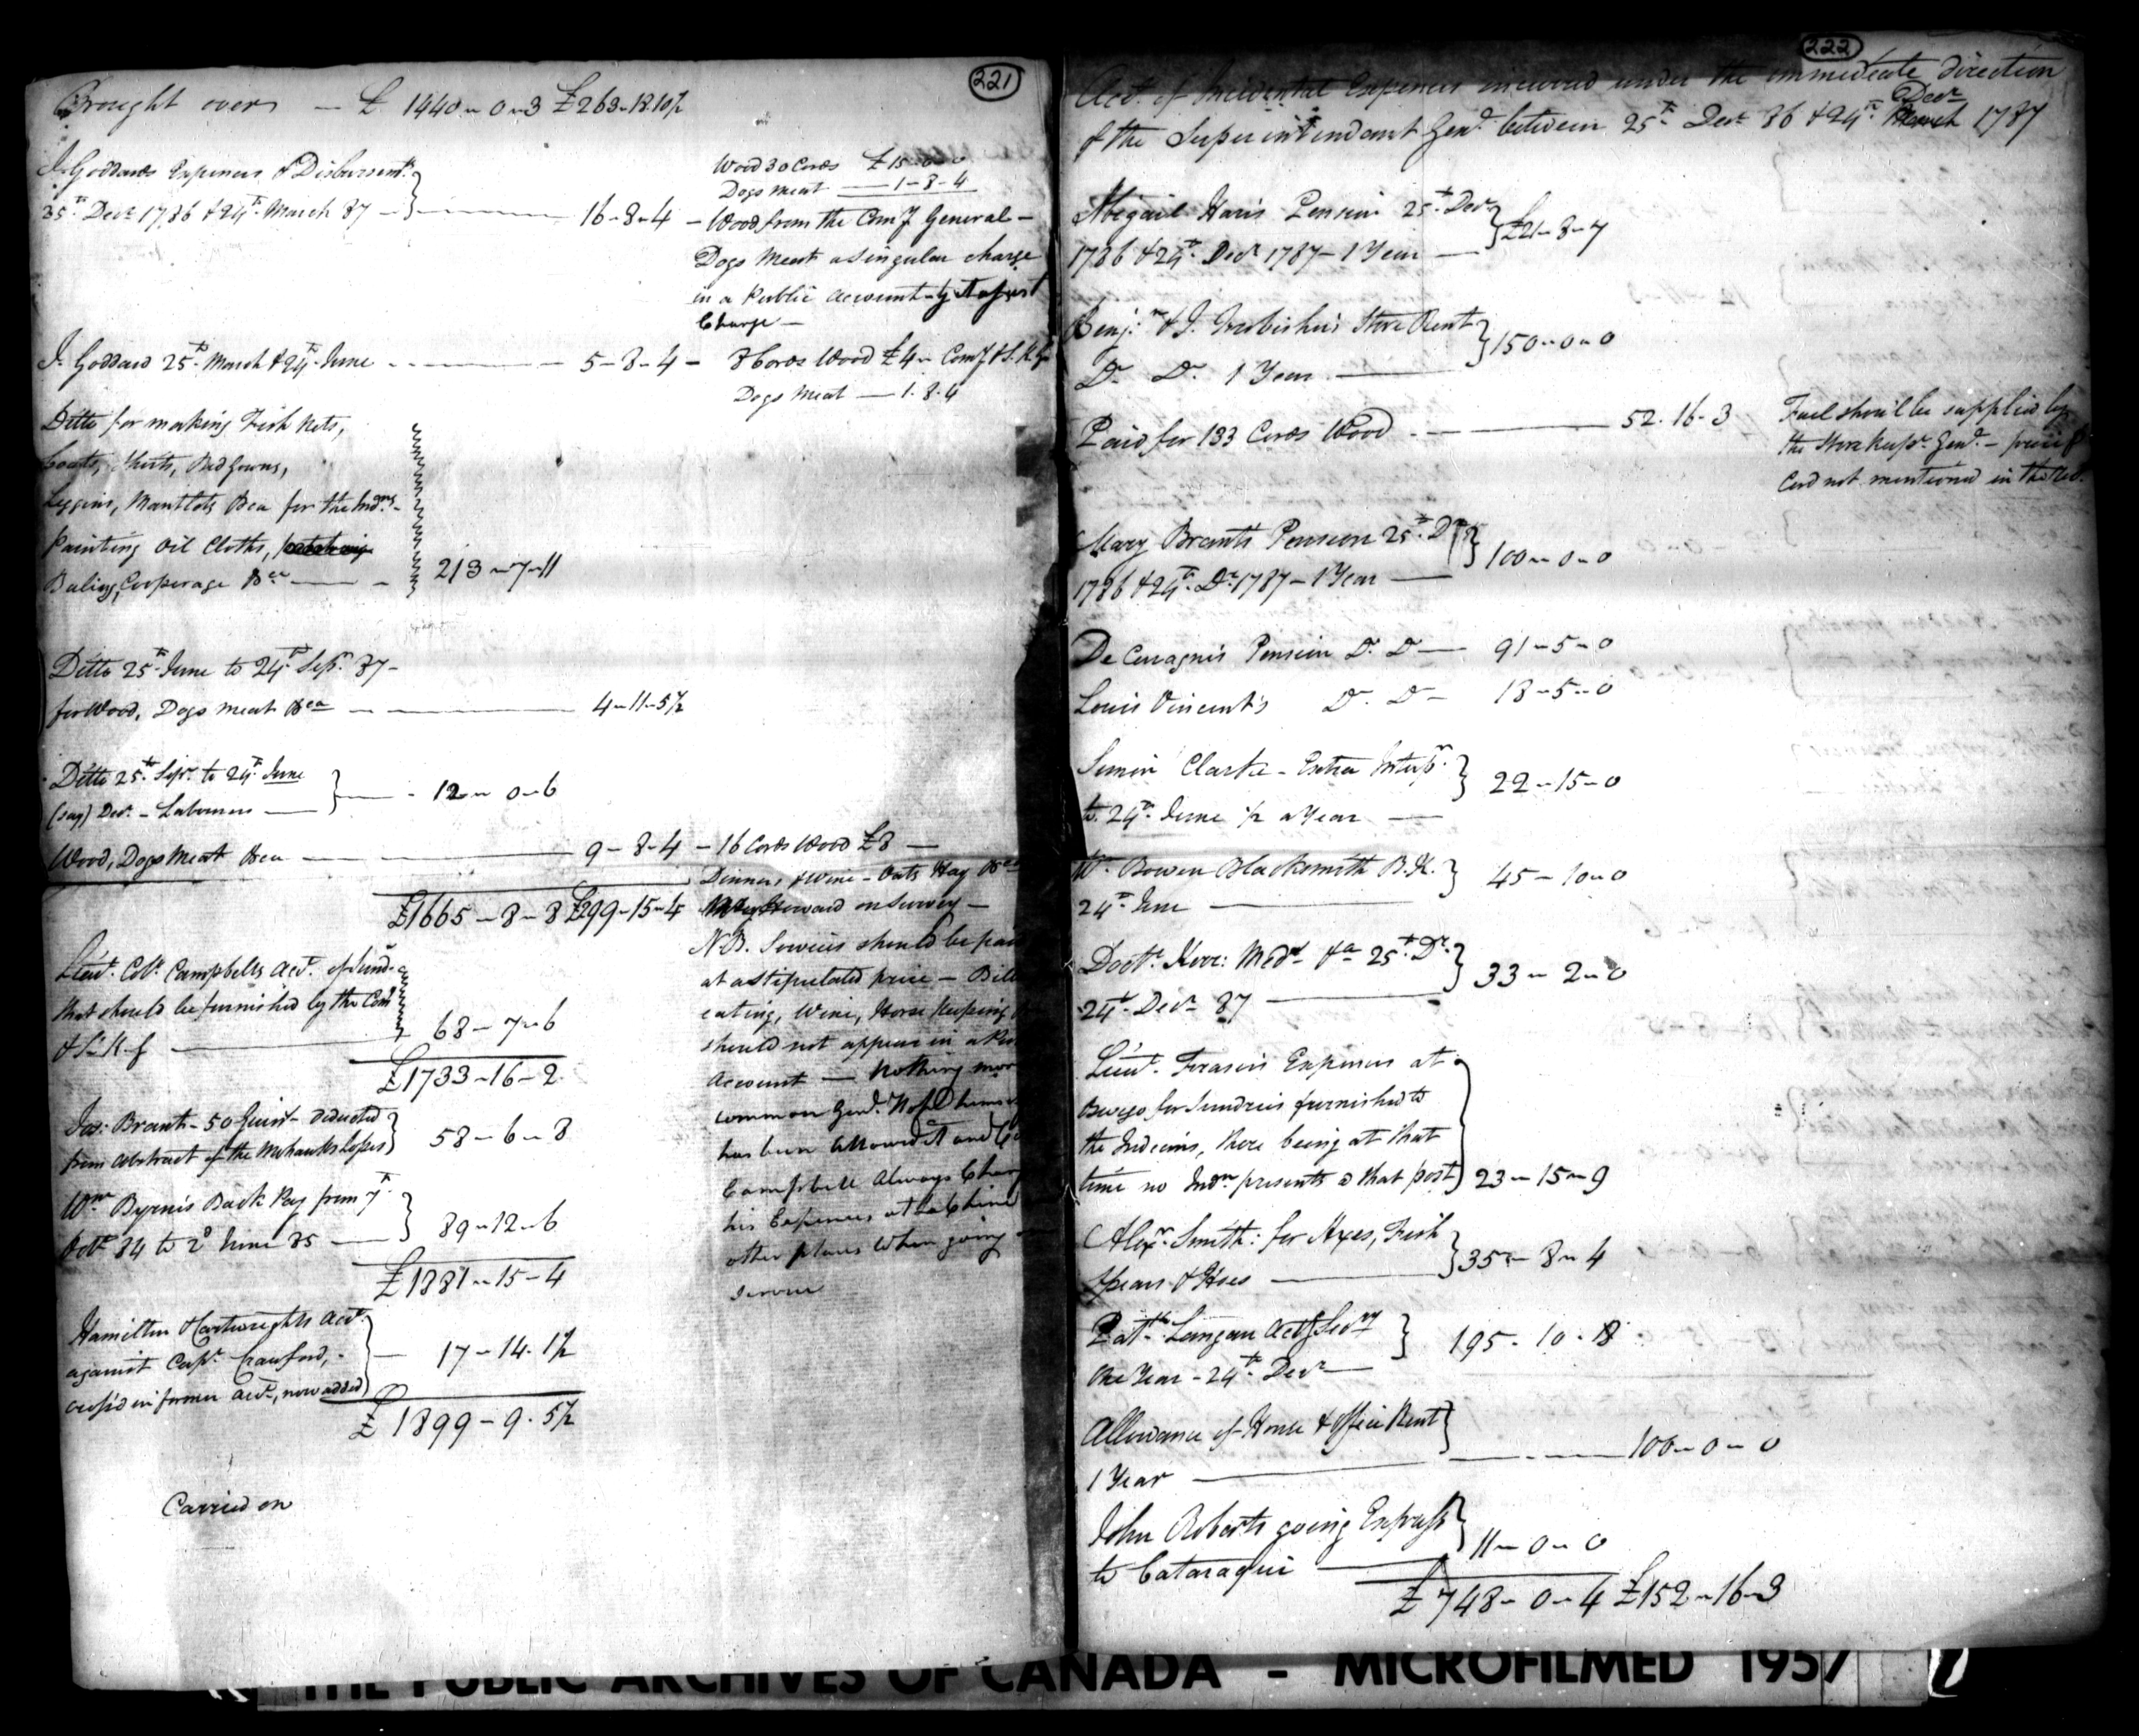 221
Brought over — £ 1440 - 0 - 3 £263 - 18 10½
J. Goddards Expences & Disbursents.
25th. Decr. 1786 & 24th. March 87 — 16 - 8 - 4 —
Wood 30 Cords £15 - 0 - 0
Dogs Meat — 1 - 8 - 4
Wood from the Comy General —
Dogs Meat a Singular charge
in a Public Account
Charge —
J. Goddard 25th. March & 24th. June — 5 - 8 - 4 — 8 Cords Wood £4 - Comy & S. K. G
Dogs Meat — 1 . 8 . 4
Ditto for making Fish Nets,
Coats, Shirts, Bed Gowns,
Leggins, Mantlets &ca for the Indns.
Painting Oil Cloths,
Baling, Cooperage &ca — 213 - 7 - 11
Ditto 25th. June to 24th. Sepr. 87 —
for Wood, Dogs meat &ca — 4 - 11 - 5½
Ditto 25th. Sepr. to 24th. June
(say) Decr. — Labourers — 12 - 0 - 6
Wood, Dogs Meat &ca — 9 - 8 - 4 — 16 Cords Wood £8 —
£1665 - 8 - 8 £299 - 15 - 4
Dinners & Wine — Oats Hay &ca
Steward on Survey —
N.B. Services should be paid
at a stipulated price — Bills
eating, Wine, Horse Keeping
should not appear in a Pub
Account — Nothing more
common Genl. Hope himse
has been allowed it and
Campbell Always Charg
his Expences at La Chine
other places when going
service
Lieut. Coll. Campbells Acct. of Sunds.
that should be furnished by the Comy
& S. K. G — 68 - 7 - 6
£1733 - 16 - 2
Jos: Brant — 50 Guins. deducted
from Abstract of the Mohawks losses 58 - 6 - 8
Wm Byrne's Back Pay from 7th.
Octr. 84 to 2d June 85 — 89 - 12 - 6
£1881 - 15 - 4
Hamilton & Cartwrights Acct.
against Capt. Crawford, —
in former Acct., now added 17 - 14 . 1½
£1899 - 9 . 5½
Carried on
222
Acct. of Incidental Expences incurred under the immediate direction
Decr
of the Superintendant Genl. between 25th. Decr. 86 & 24th. March 1787
Abigail Haris Pension 25th. Decr
1786 & 24th. Decr 1787 — 1 Year — £21 - 8 - 7
Benjn. & J. Frobisher's Store Rent
Do. Do. 1 Year — 150 - 0 - 0
Paid for 133 Cords Wood — 52 . 16 - 3
Fuel shou'd be supplied by
the Storekeepr. Genl. — price
Cord not mentioned in the Rec.
Mary Brants Pension 25th. Dr
1786 & 24th. Dr. 1787 — 1 Year — 100 - 0 - 0
De Couagne's Pension Do. Do — 91 - 5 - 0
Louis Vincent's Do. Do — 18 - 5 - 0
Simon Clarke — Extra Interpr.
to 24th. June ½ a Year — 22 - 15 - 0
Wm. Bowen Blacksmith B. K.
24th. June — 45 - 10 - 0
Doctr. Kerr: Medn. &ca 25th. Dr.
24th. Decr. 87 — 33 - 2 - 0
Lieut. Frasers Expences at
Oswego for Sundries furnished to
the Indians, there being at that
time no Indn presents @ that post 23 - 15 - 9
Alexr. Smith: for Axes, Fish
Spears & Hoes — 35 - 8 - 4
Patk. Langan Actg Secry
One Year - 24th. Decr — 195 . 10 . 8
Allowance of House & Office Rent
1 Year — 100 - 0 - 0
John Roberts going Express
to Cataraqui — 11 - 0 - 0
£748 - 0 - 4 £152 - 16 - 3
THE PUBLIC ARCHIVES OF CANADA - MICROFILMED 1957